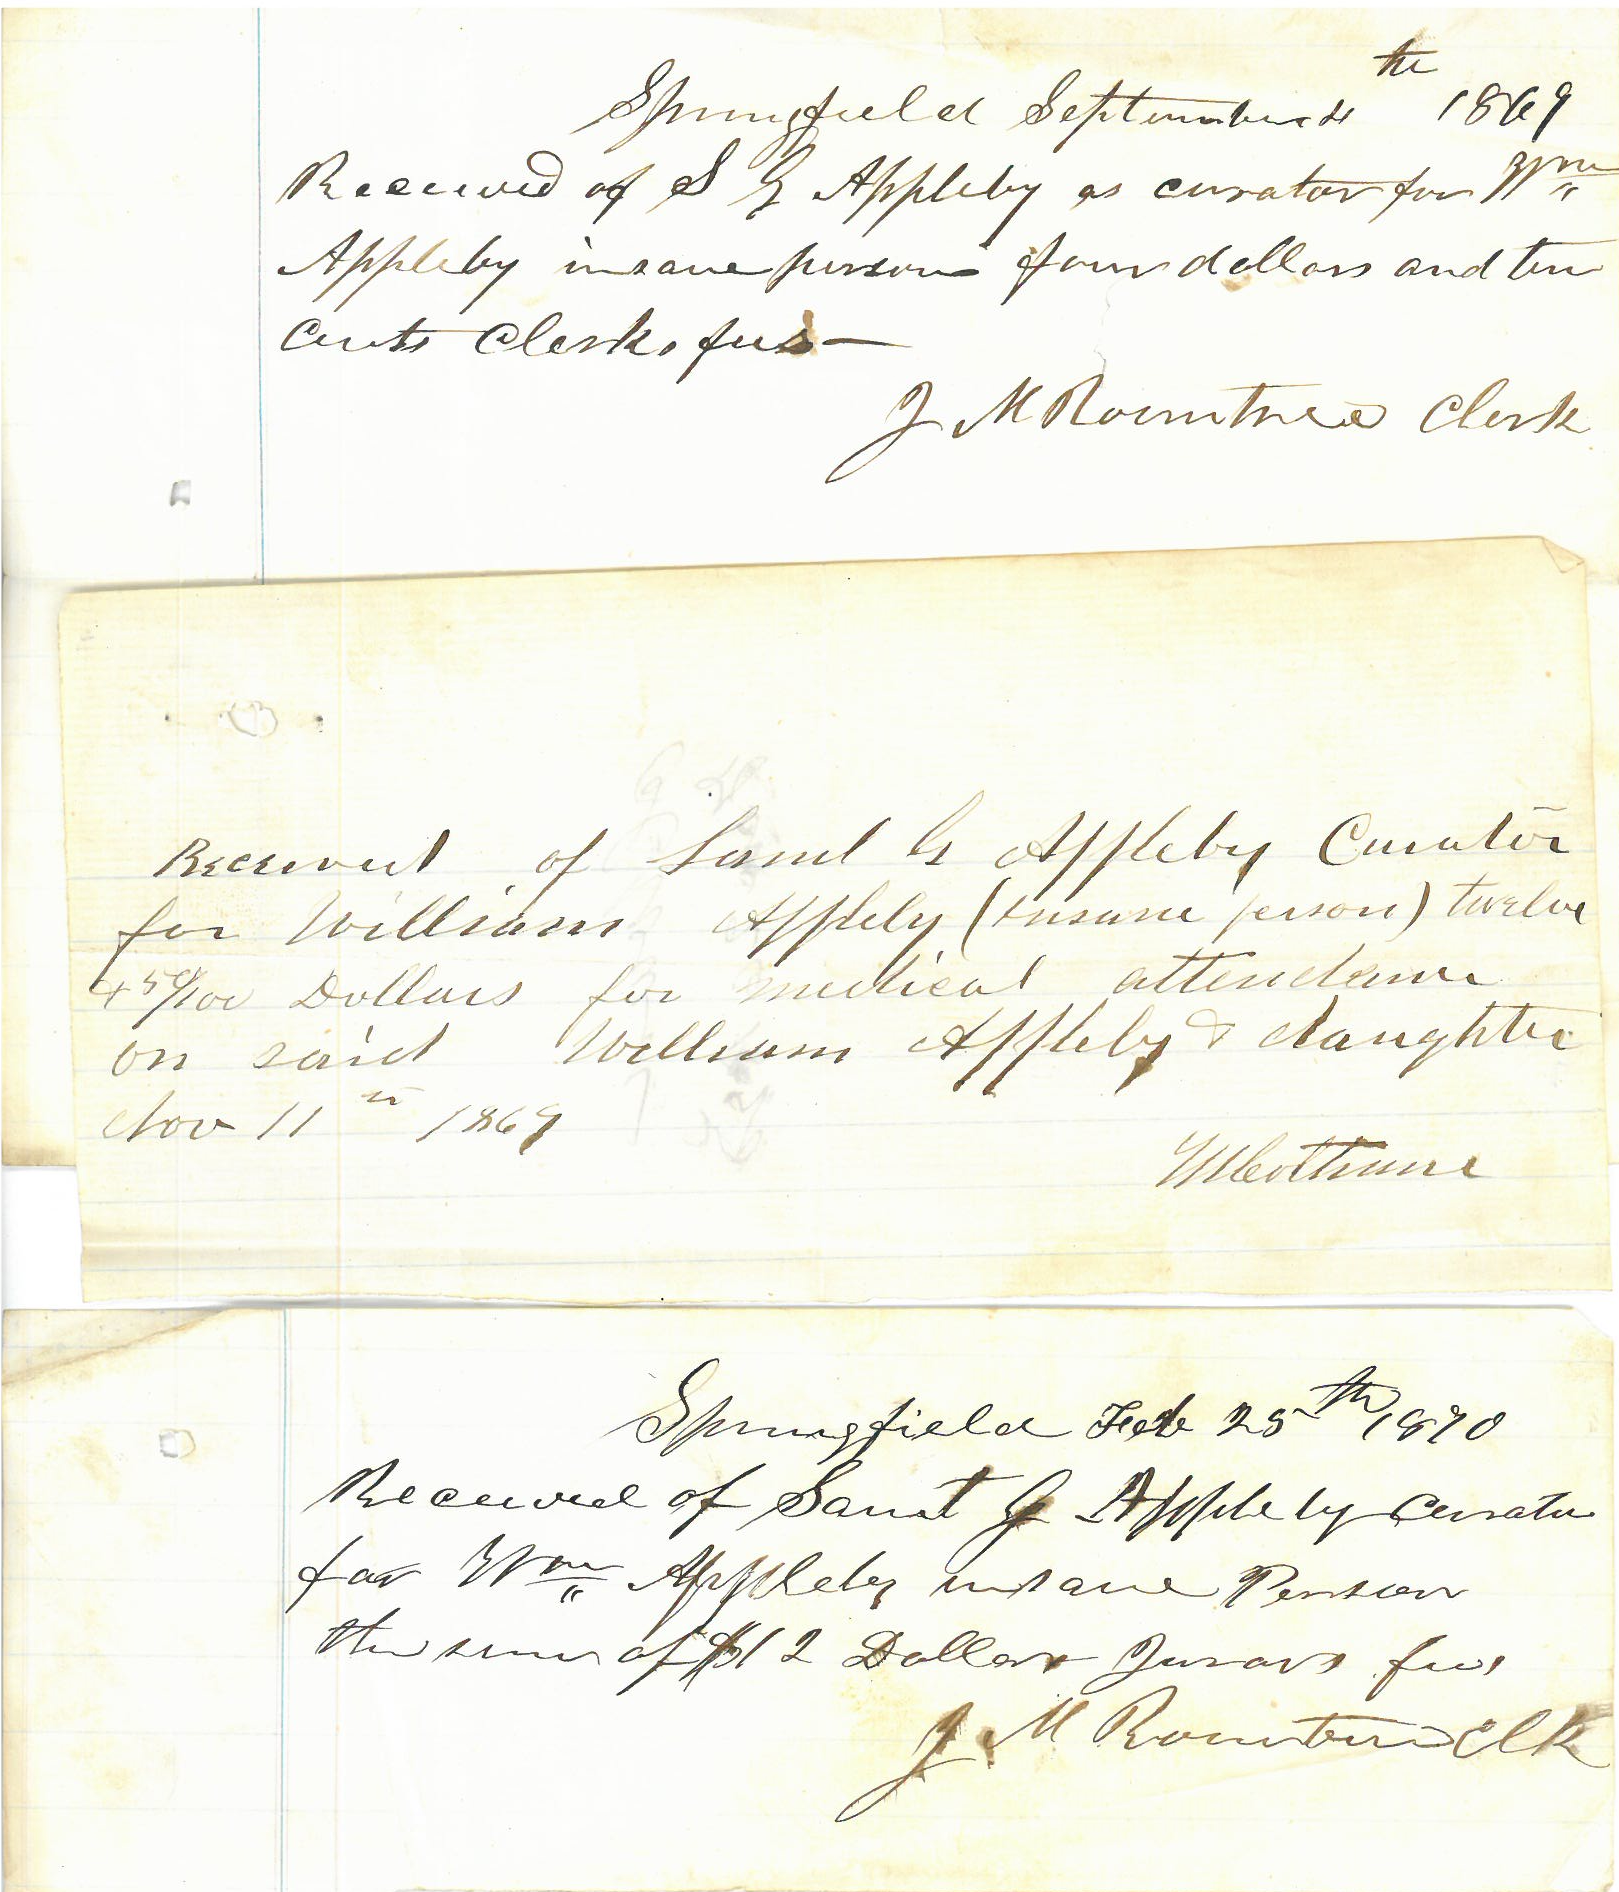 Springfield September 4th 1869
Received of S G Appleby as curator for Wm
Appleby insane person four dollars and ten
Cents Clerks fees —
J M Rountree Clerk
Received of Saml G Appleby Curator
for William Appleby (insane person) twelve
+ 50/100 Dollars for medical attendance
on said William Appleby & daughter
Nov 11th 1869
Springfield Feb 25th 1870
Received of Saml G Appleby curator
for Wm Appleby insane Person
the sum of $12 Dollars Jurors fees
J M Rountree Clk